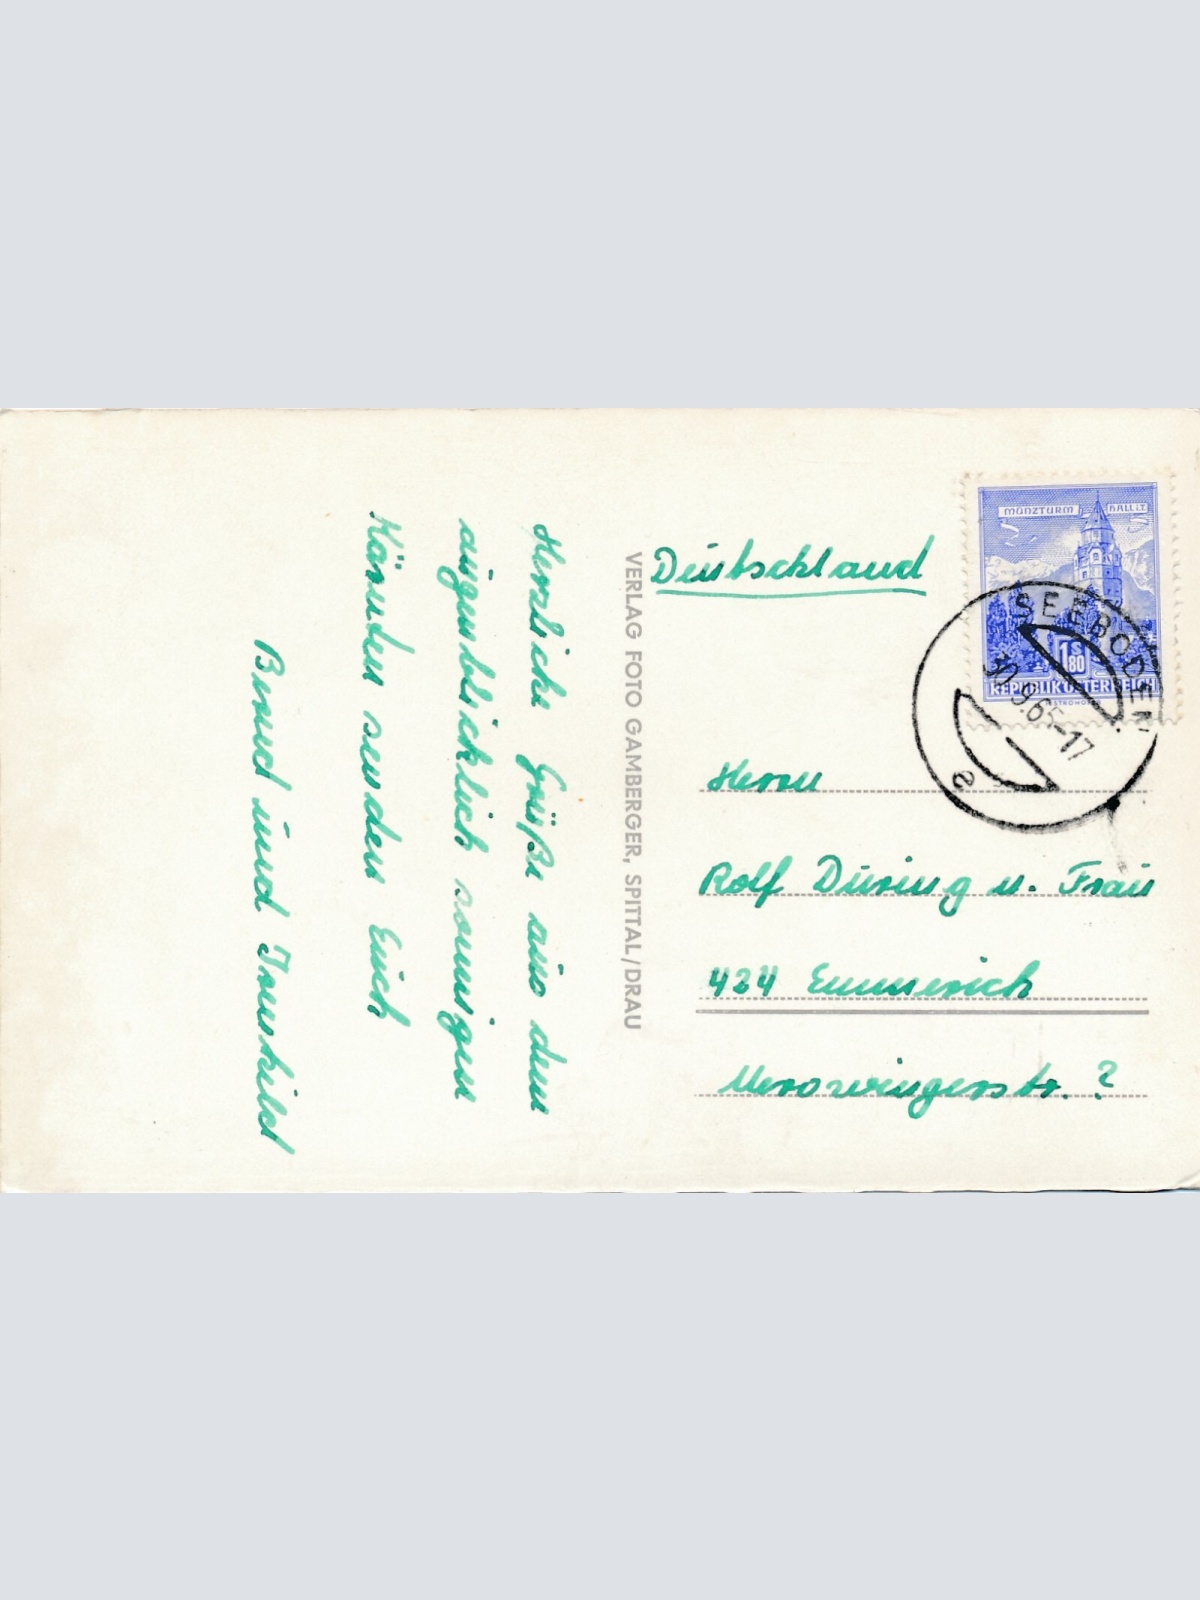 Herzliche Grüße aus dem
augenblicklich sonnigen
Kärnten senden Euch
Bernd und Irmhild
VERLAG FOTO GAMBERGER, SPITTAL/DRAU
Deutschland
MÜNZTURM HALL i.T.
S 1.80
REPUBLIK ÖSTERREICH
SEEBODEN
30.9.65-17
a
Herrn
Rolf Düring u. Frau
424 Emmerich
Merowingerstr. ?